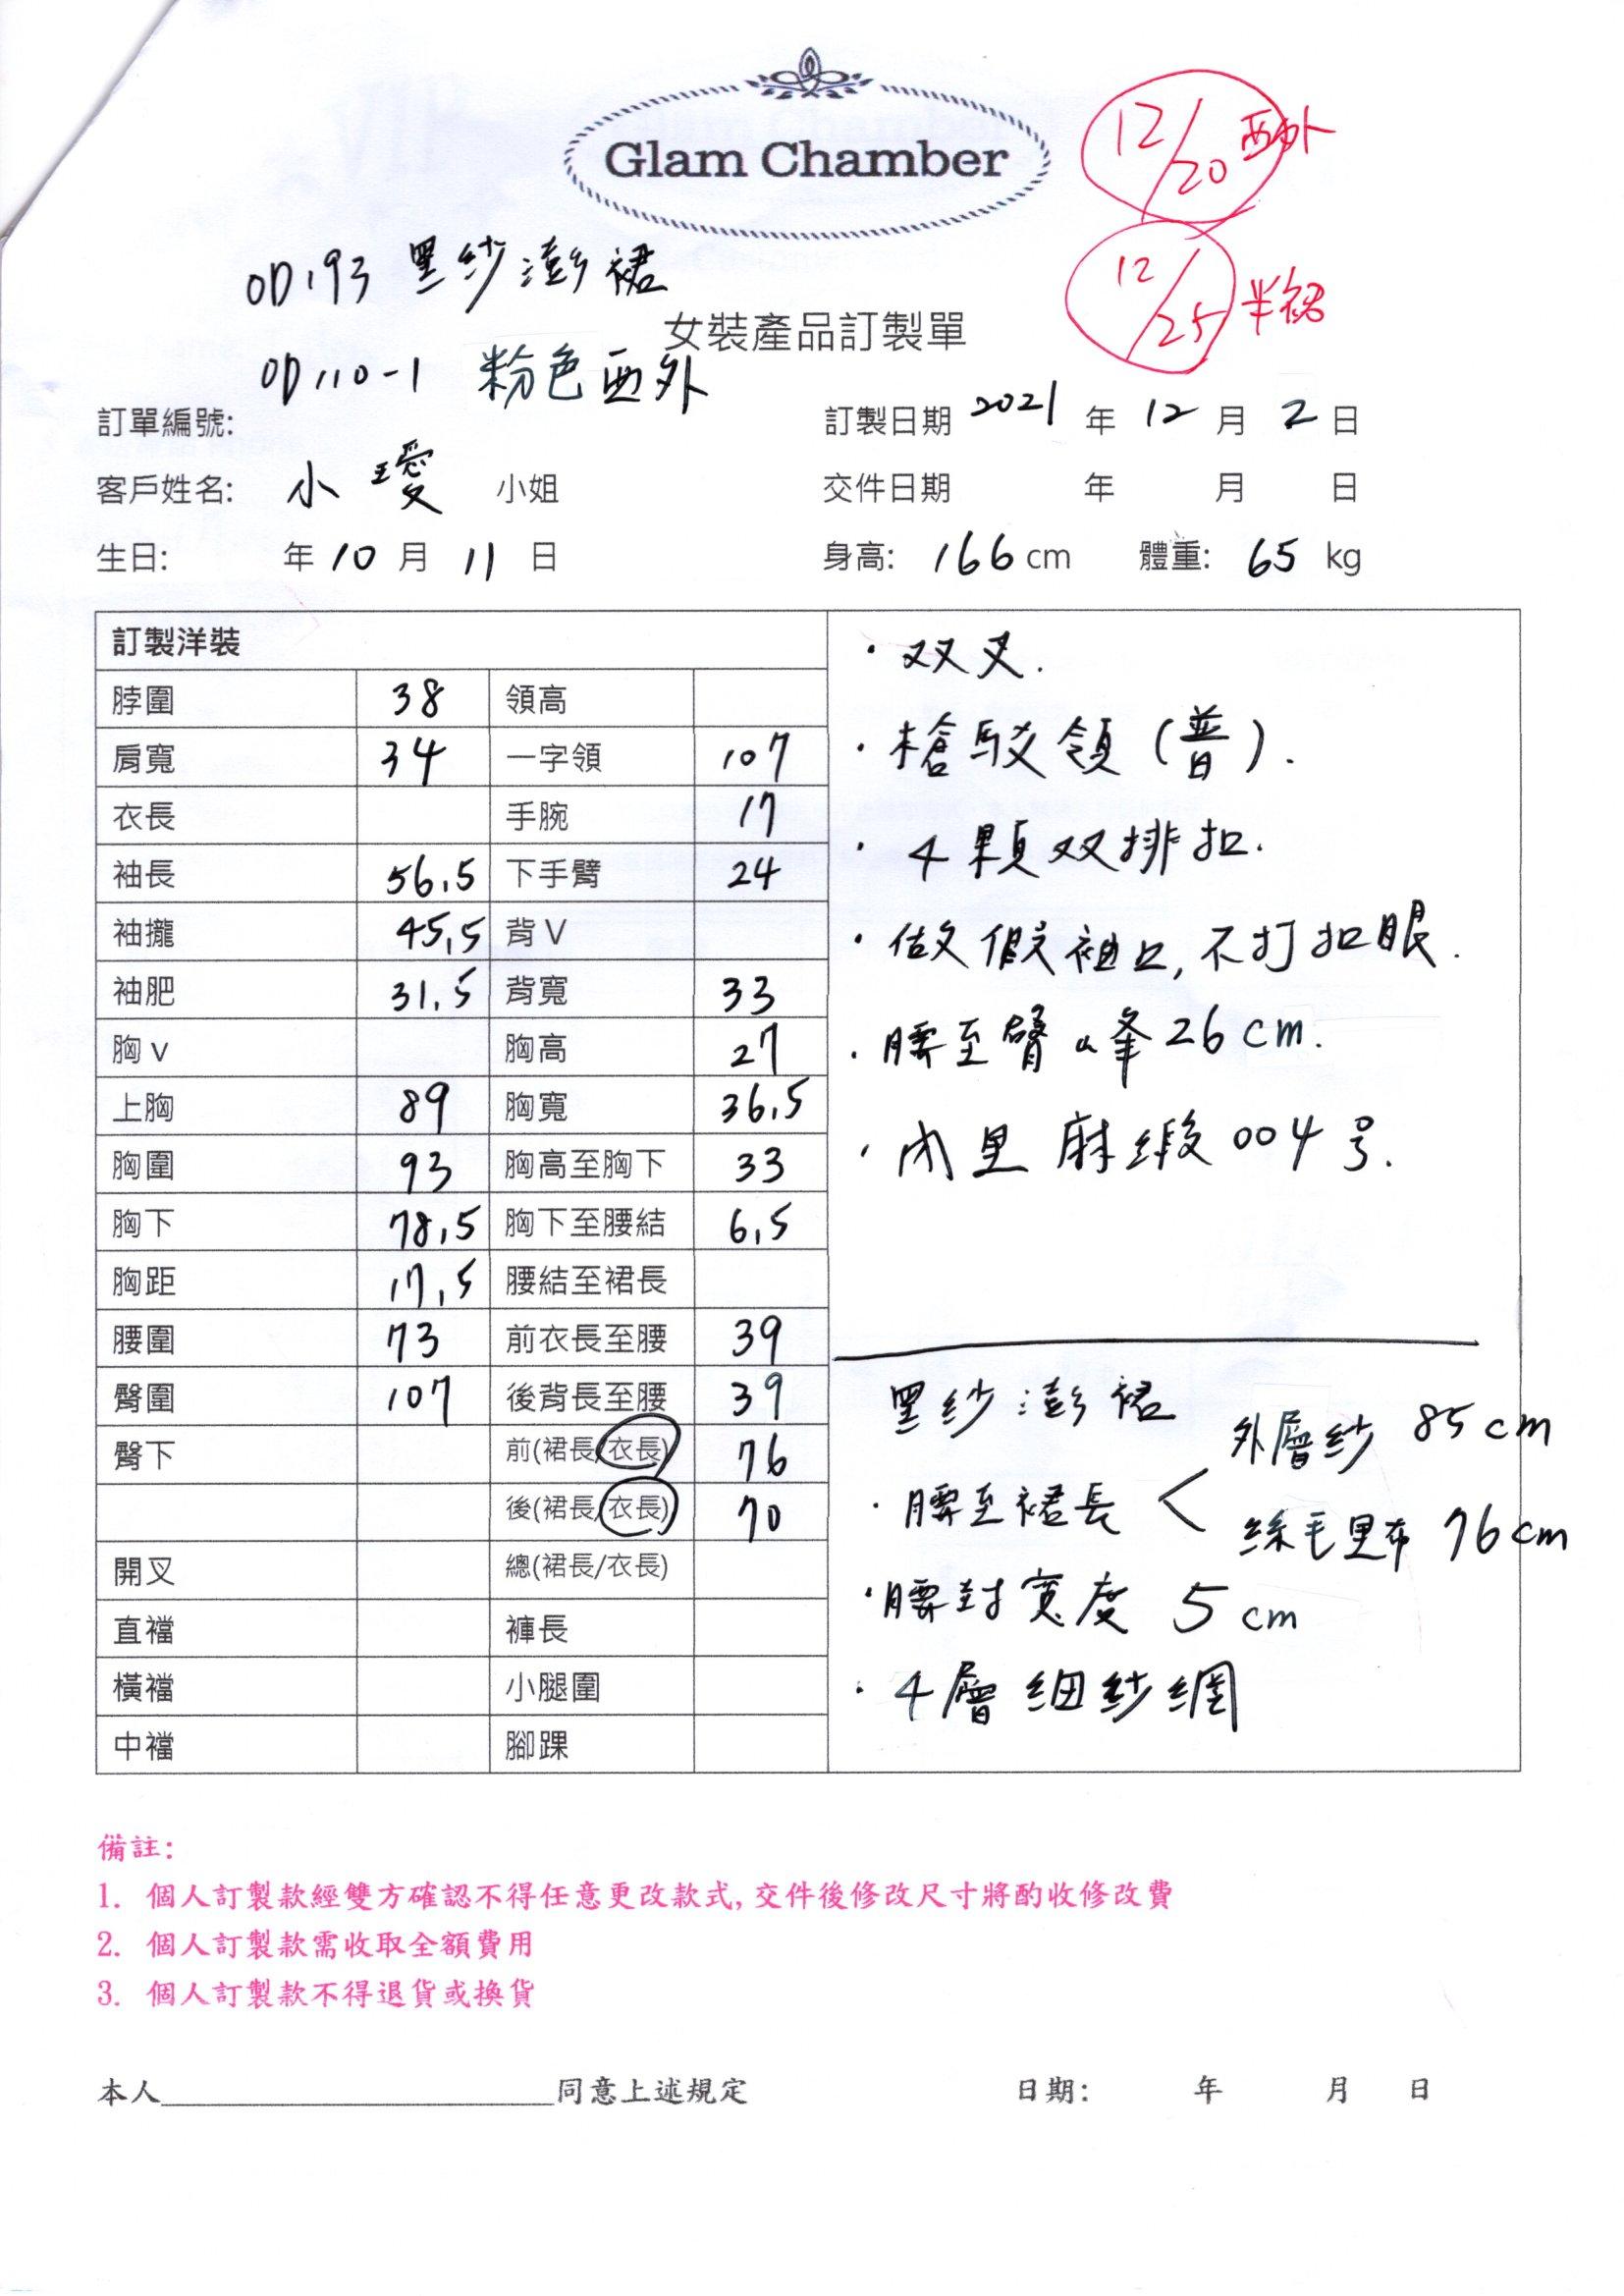 Glam Chamber
12/20 西外
12/25 半裙
OD193 黑紗澎裙
女裝產品訂製單
OD110-1 粉色西外
訂單編號:
訂製日期 2021 年 12 月 2 日
客戶姓名: 小璦 小姐
交件日期 年 月 日
生日: 年 10 月 11 日
身高: 166 cm 體重: 65 kg
訂製洋裝
脖圍 38 領高
肩寬 34 一字領 107
衣長 手腕 17
袖長 56.5 下手臂 24
袖攏 45.5 背V
袖肥 31.5 背寬 33
胸v 胸高 27
上胸 89 胸寬 36.5
胸圍 93 胸高至胸下 33
胸下 78.5 胸下至腰結 6.5
胸距 17.5 腰結至裙長
腰圍 73 前衣長至腰 39
臀圍 107 後背長至腰 39
臀下 前(裙長/衣長) 76
後(裙長/衣長) 70
開叉 總(裙長/衣長)
直襠 褲長
橫襠 小腿圍
中襠 腳踝
·双叉.
·槍駁領(普).
·4顆双排扣.
·做假袖口,不打扣眼.
·腰至臀山峯26cm.
·內里麻緞004号.
黑紗澎裙
·腰至裙長 < 外層紗 85cm
絲毛里布 76cm
·腰封寬度 5cm
·4層細紗網
備註:
1. 個人訂製款經雙方確認不得任意更改款式,交件後修改尺寸將酌收修改費
2. 個人訂製款需收取全額費用
3. 個人訂製款不得退貨或換貨
本人________________同意上述規定
日期: 年 月 日